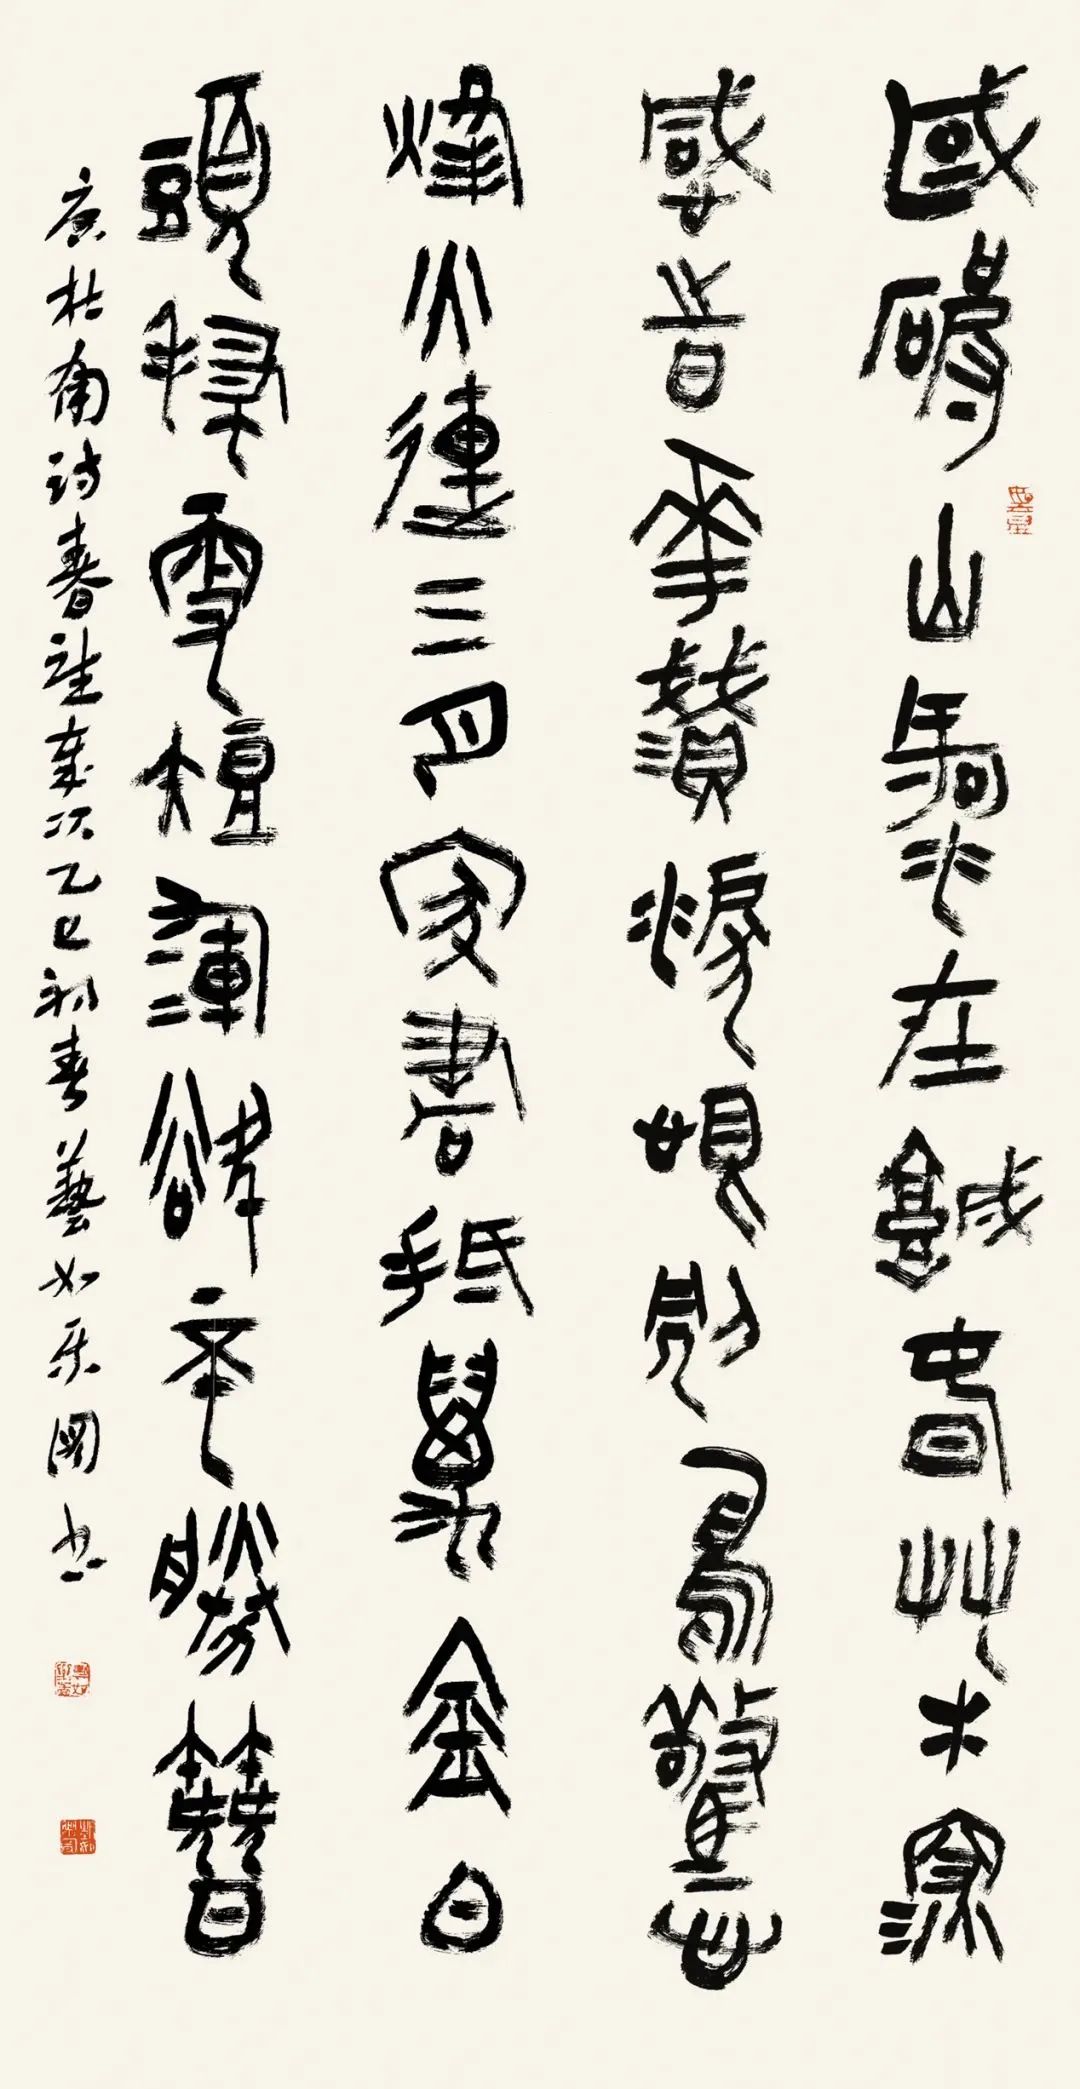 國破山河在城春草木深
感時花濺淚恨別鳥驚心
烽火連三月家書抵萬金白
頭搔更短渾欲不勝簪
唐杜甫詩春望歲次乙巳初春藝如樂書